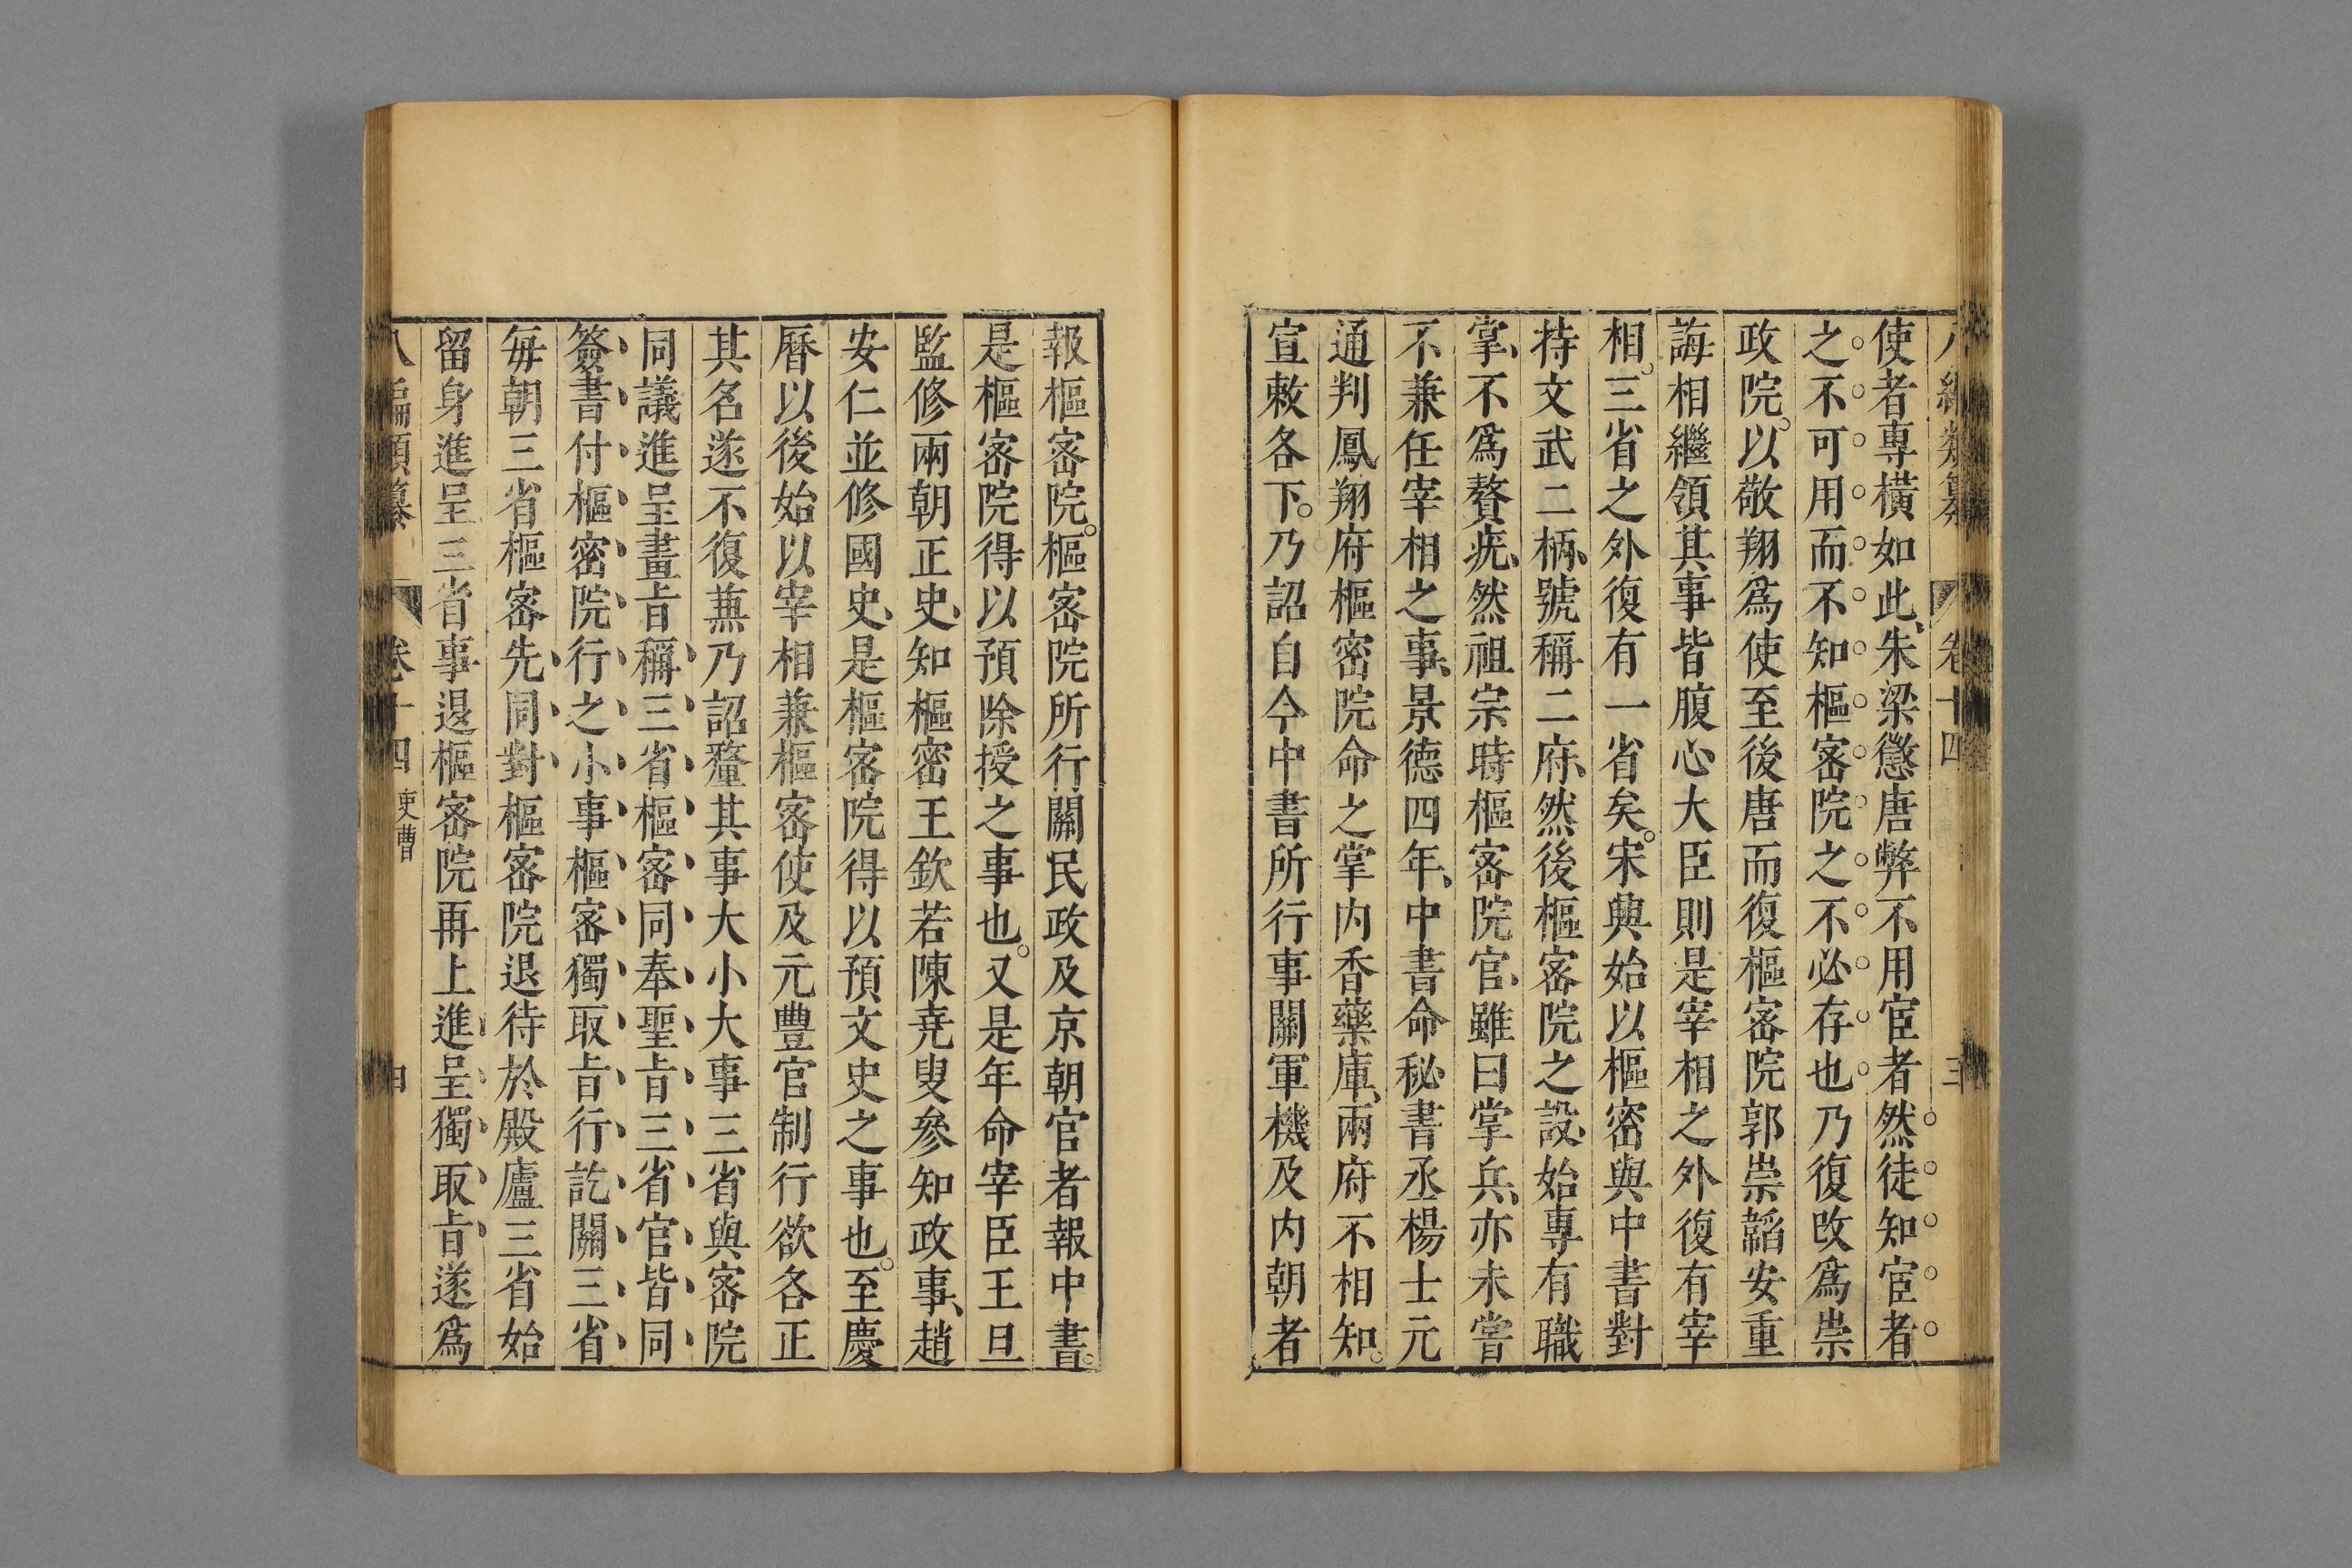 編類纂 卷十四 三
使者專橫如此、朱梁懲唐弊不用宦者然徒知宦者
之不可用而不知樞密院之不必存也乃復改爲崇
政院。以敬翔爲使至後唐而復樞密院郭崇韜安重
誨相繼領其事皆腹心大臣則是宰相之外復有宰
相。三省之外復有一省矣。宋興始以樞密與中書對
持文武二柄、號稱二府、然後樞密院之設、始專有職
掌、不爲贅疣、然祖宗時樞密院官、雖曰掌兵、亦未嘗
不兼任宰相之事、景德四年、中書命秘書丞楊士元
通判鳳翔府樞密院命之掌内香藥庫、兩府不相知。
宣敕各下。乃詔自今中書所行事關軍機及内朝者
報樞密院。樞密院所行關民政及京朝官者報中書。
是樞密院得以預除授之事也。又是年命宰臣王旦
監修兩朝正史、知樞密王欽若陳堯叟參知政事、趙
安仁並修國史、是樞密院得以預文史之事也。至慶
曆以後始以宰相兼樞密使及元豐官制行欲各正
其名遂不復兼乃詔釐其事大小大事三省與密院
同議進呈畫旨稱三省樞密同奉聖旨三省官皆同
簽書付樞密院行之小事樞密獨取旨行訖關三省
每朝三省樞密先同對樞密院退待於殿廬三省始
留身進呈三省事退樞密院再上進呈獨取旨遂爲
八編類纂 卷十四 吏曹